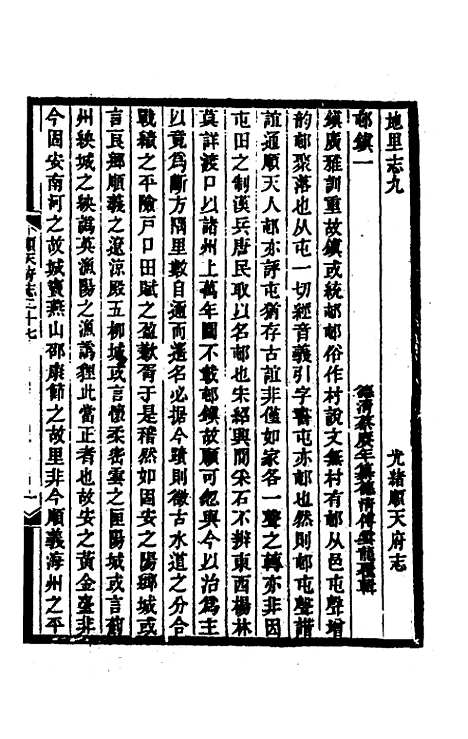 地里志九 光緒順天府志
邨鎮一 德清蔡賡年纂德清傅雲龍覆輯
鎮廣雅訓重故鎮或統邨邨俗作村說文無村有邨从邑屯聲增
韵邨聚落也从屯一切經音義引字書屯亦邨也然則邨屯聲諧
誼通順天人邨亦評屯猶存古誼非僅如家各一聲之轉亦非因
屯田之制漢兵唐民取以名邨也朱紹興閒采石不辦東西楊林
莫詳渡口以諸州上萬年圖不載邨鎮故顧可忽與今以治爲主
以竟爲斷方隅里數自邇而遙名必据今蹟則徵古水道之分合
戰績之平險戸口田賦之盈歉胥于是稽然如固安之陽鄉城或
言良鄉順義之遼涼殿五柳城或言懷柔密雲之匣陽城或言薊
州缺城之缺爲英漁陽之漁譌狸此當正者也故安之黃金臺非
今固安南河之故城竇燕山邵康節之故里非今順義海州之平
順天府志二十七